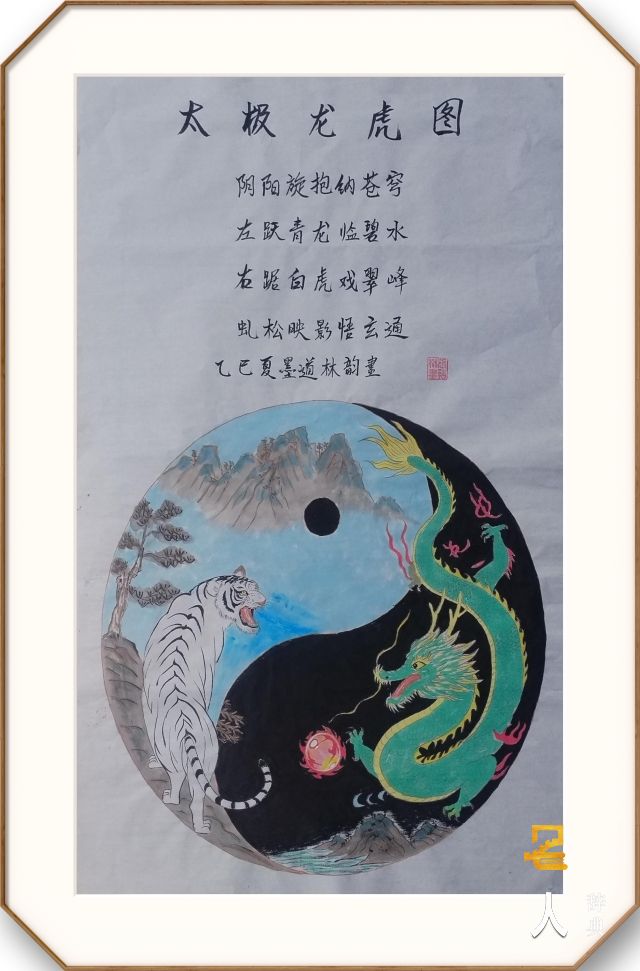 太极龙虎图
阴阳旋抱纳苍穹
左跃青龙临碧水
右踞白虎戏翠峰
虬松映影悟玄通
乙巳夏墨道林韵画
名
人
辞
典